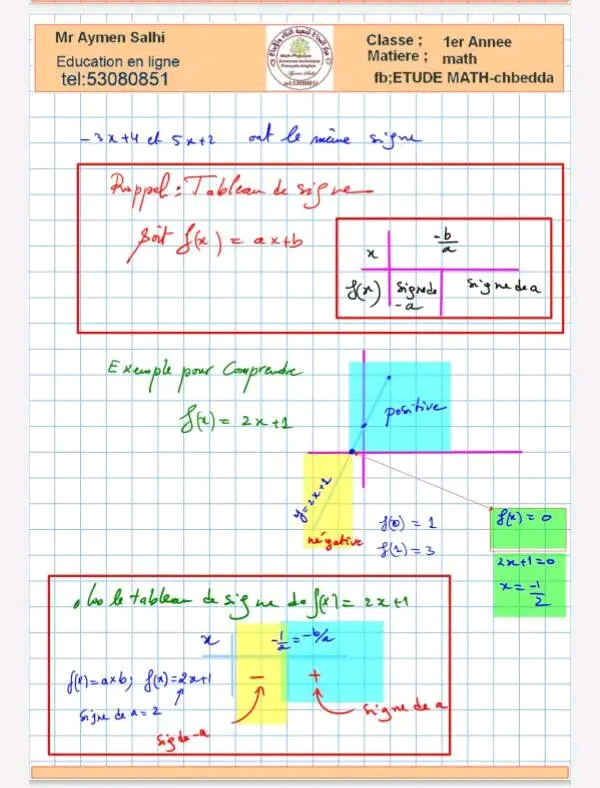 Mr Aymen Salhi
Education en ligne
tel:53080851
Classe ; 1er Annee
Matiere ; math
fb;ETUDE MATH-chbedda
-3x+4 et 5x+2 ont le même signe
Rappel : Tableau de signe
Soit f(x) = ax+b
x -b/a
f(x) signe de -a signe de a
Exemple pour Comprendre
f(x) = 2x+1
positive
y=2x+1
négative
f(0) = 1
f(1) = 3
f(x) = 0
2x+1=0
x = -1/2
le tableau de signe de f(x) = 2x+1
x -1/2 = -b/a
f(x)=axb; f(x)=2x+1 - +
signe de a = 2
signe de a
sig de -a